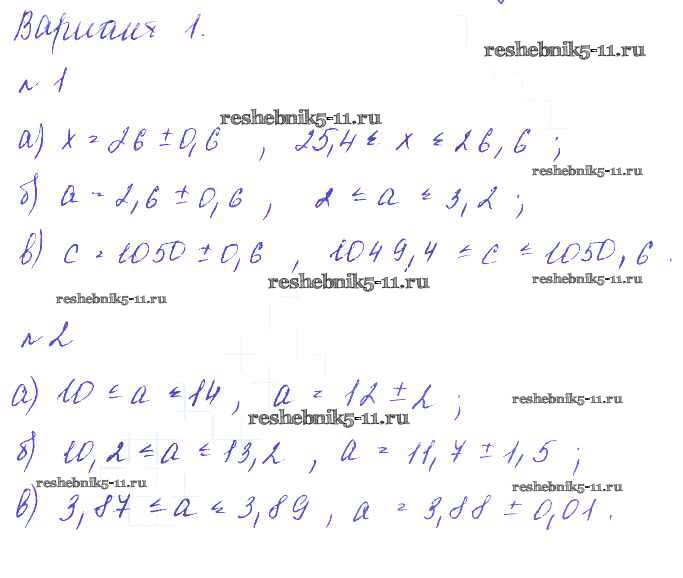 Вариант 1.
reshebnik5-11.ru
№ 1
reshebnik5-11.ru
а) x = 26 ± 0,6 , 25,4 ≤ x ≤ 26,6 ;
reshebnik5-11.ru
б) a = 2,6 ± 0,6 , 2 ≤ a ≤ 3,2 ;
в) c = 1050 ± 0,6 , 1049,4 ≤ c ≤ 1050,6 .
reshebnik5-11.ru reshebnik5-11.ru
reshebnik5-11.ru
№ 2
а) 10 ≤ a ≤ 14 , a = 12 ± 2 ;
reshebnik5-11.ru
reshebnik5-11.ru
б) 10,2 ≤ a ≤ 13,2 , a = 11,7 ± 1,5 ;
reshebnik5-11.ru reshebnik5-11.ru
в) 3,87 ≤ a ≤ 3,89 , a = 3,88 ± 0,01 .